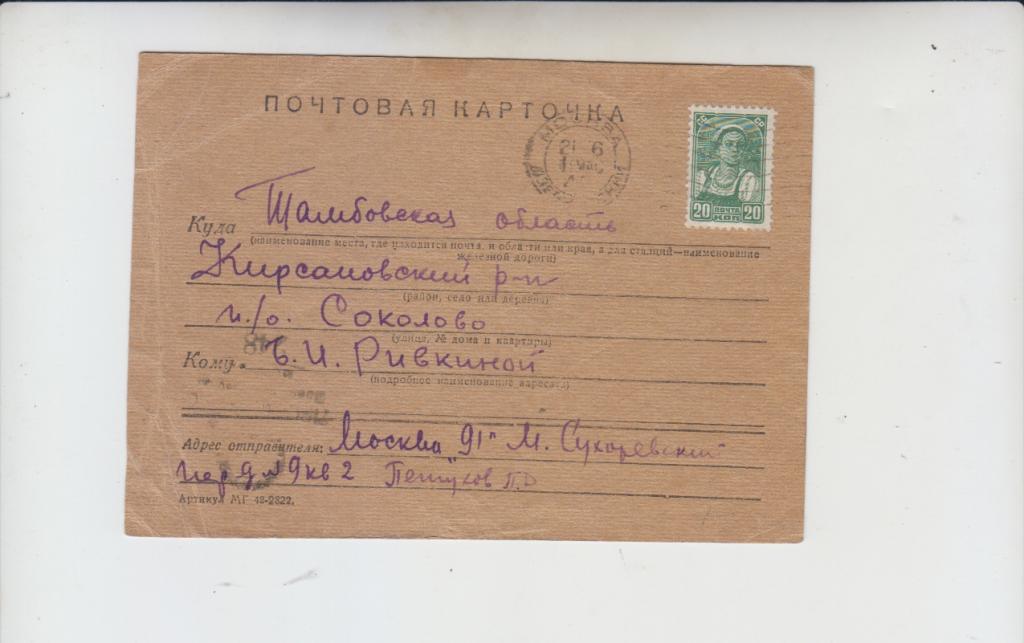 ПОЧТОВАЯ КАРТОЧКА
МОСКВА
21 6
СР СР
20 ПОЧТА 20
КОП
Куда Тамбовская область
(наименование места, где находится почта, и области или края, а для станций—наименование
железной дороги)
Кирсановский р-н
(район, село или деревня)
п/о. Соколово
(улица, № дома и квартиры)
Кому Б. И. Ривкиной
(подробное наименование адресата)
Адрес отправителя: Москва "91" М. Сухаревский
пер д 9 кв 2 Петухов П.D
Артикул МГ 42-2822.